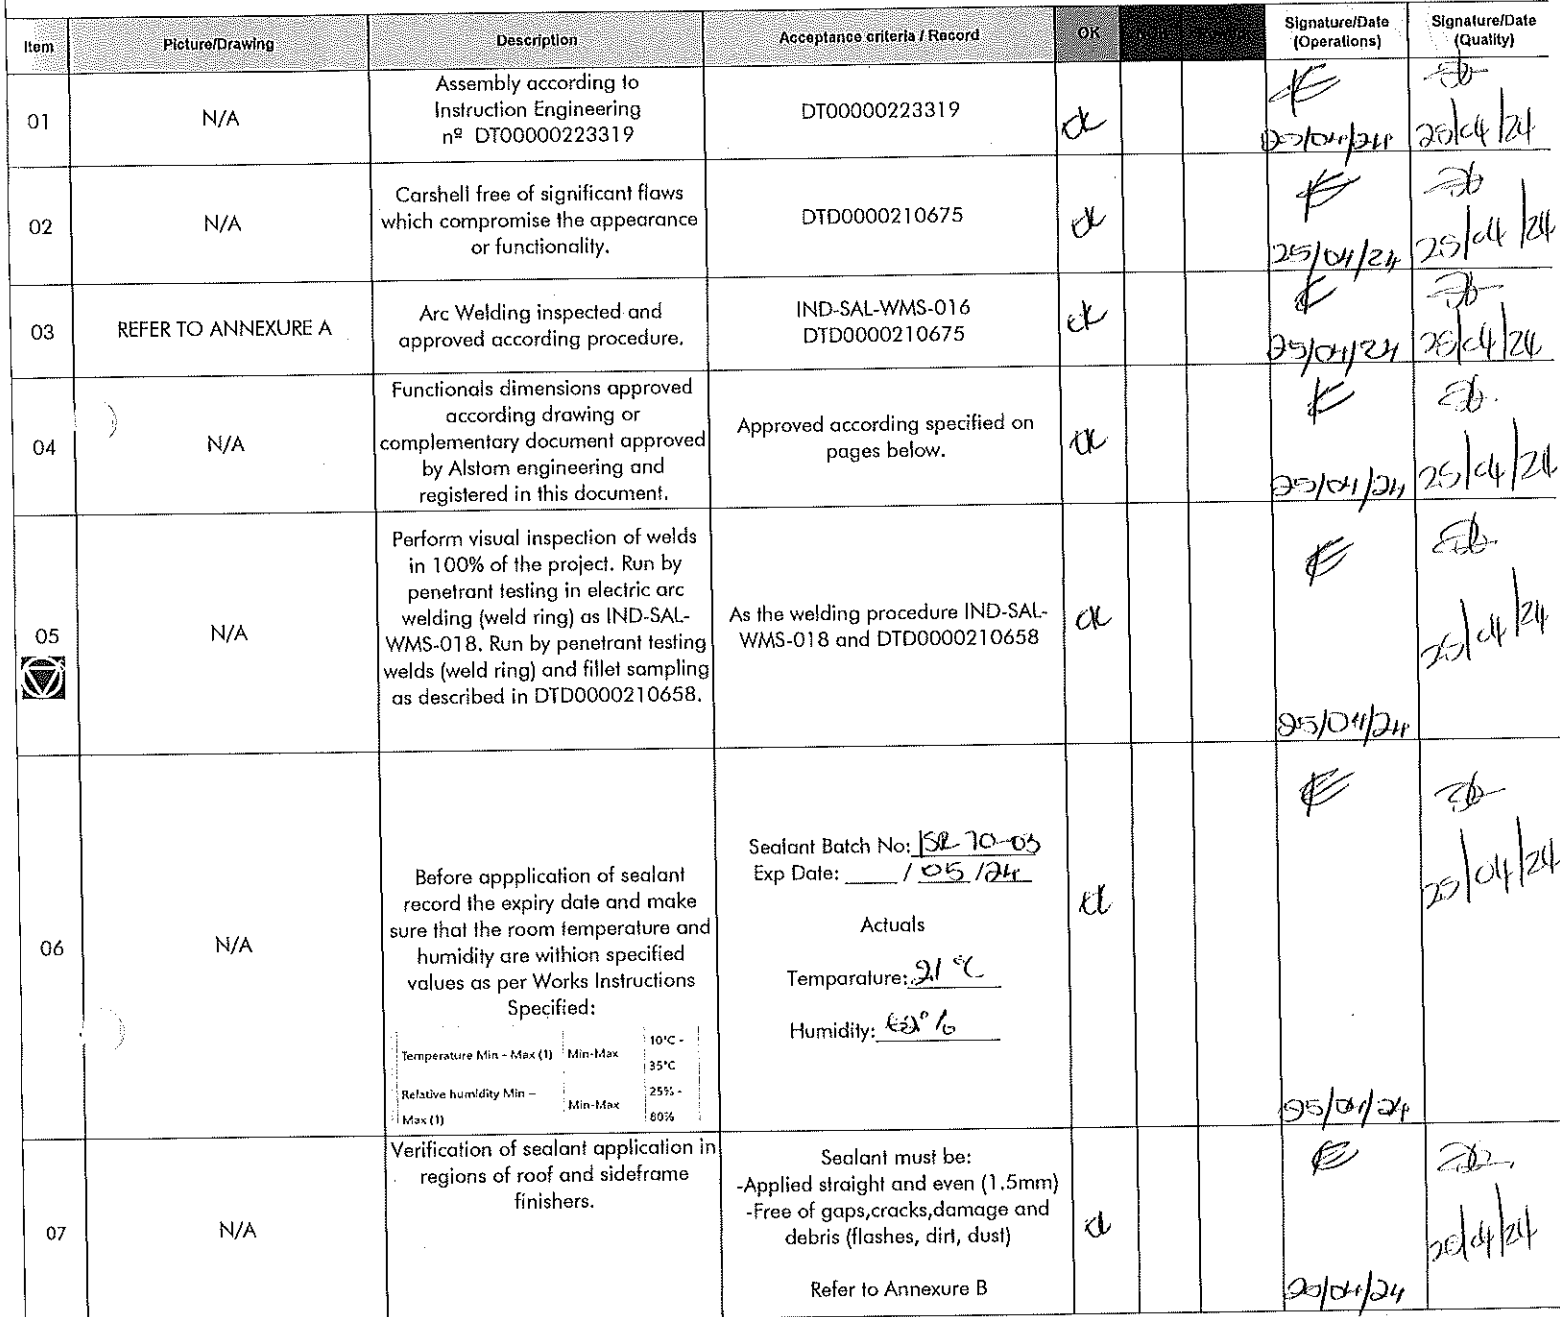 Item
Picture/Drawing
Description
Acceptance criteria / Record
OK
Signature/Date
(Operations)
Signature/Date
(Quality)
01
N/A
Assembly according to
Instruction Engineering
nº DT00000223319
DT00000223319
ok
25/04/24
25/04/24
02
N/A
Carshell free of significant flaws
which compromise the appearance
or functionality.
DTD0000210675
ok
25/04/24
25/04/24
03
REFER TO ANNEXURE A
Arc Welding inspected and
approved according procedure.
IND-SAL-WMS-016
DTD0000210675
ok
25/04/24
25/04/24
04
N/A
Functionals dimensions approved
according drawing or
complementary document approved
by Alstom engineering and
registered in this document.
Approved according specified on
pages below.
ok
25/04/24
25/04/24
05
N/A
Perform visual inspection of welds
in 100% of the project. Run by
penetrant testing in electric arc
welding (weld ring) as IND-SAL-
WMS-018. Run by penetrant testing
welds (weld ring) and fillet sampling
as described in DTD0000210658.
As the welding procedure IND-SAL-
WMS-018 and DTD0000210658
ok
25/04/24
25/04/24
06
N/A
Before appplication of sealant
record the expiry date and make
sure that the room temperature and
humidity are withion specified
values as per Works Instructions
Specified:
Temperature Min - Max (1) Min-Max 10°C -
35°C
Relative humidity Min –
Max (1) Min-Max 25% -
80%
Sealant Batch No: ISR 70-03
Exp Date: ____ / 05 /24
Actuals
Temparature: 21 °C
Humidity: %
ok
25/04/24
25/04/24
07
N/A
Verification of sealant application in
regions of roof and sideframe
finishers.
Sealant must be:
-Applied straight and even (1.5mm)
-Free of gaps,cracks,damage and
debris (flashes, dirt, dust)
Refer to Annexure B
ok
25/04/24
25/04/24